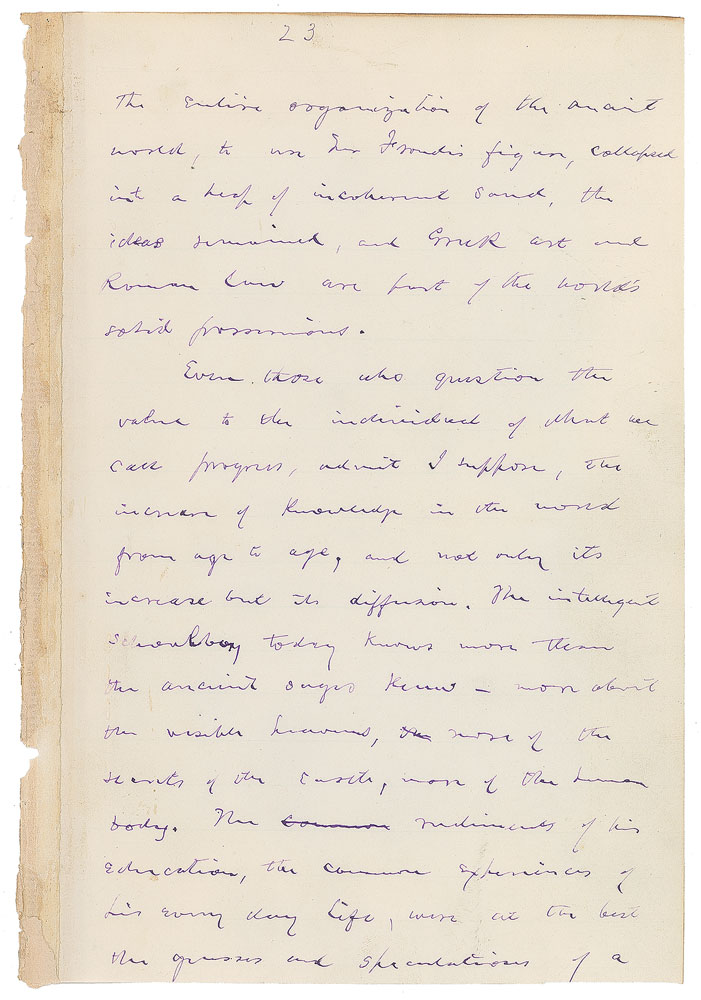 23
The entire organization of the ancient
world, to use Mr Froude's figure, collapsed
into a heap of incoherent sand, the
ideas remained, and Greek art and
Roman law are part of the world's
solid possessions.
Even those who question the
value to the individual of what we
call progress, admit I suppose, the
increase of knowledge in the world
from age to age, and not only its
increase but its diffusion. The intelligent
schoolboy today knows more than
the ancient sages knew - more about
the visible heavens, the more of the
secrets of the earth, more of the human
body. The common rudiments of his
education, the common experiences of
his every day life, were at the best
the guesses and speculations of a